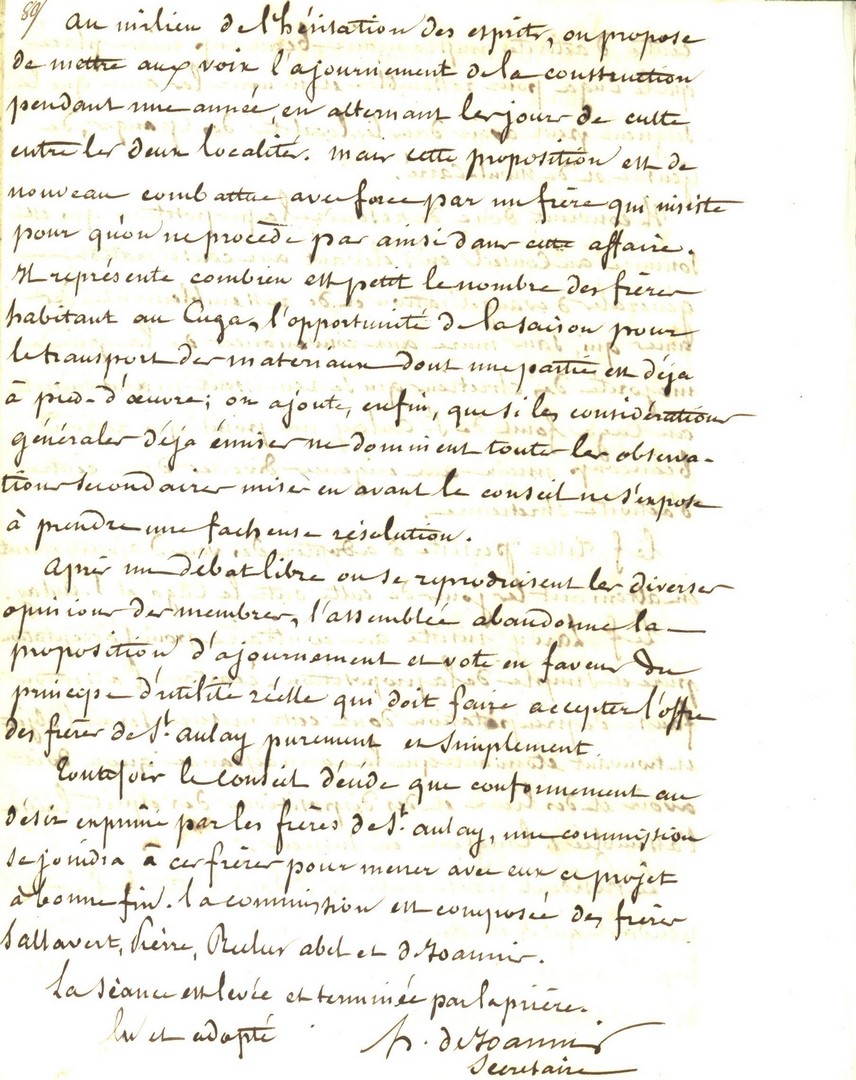 89/ au milieu de l'hésitation des esprits, on propose
de mettre aux voix l'ajournement de la construction
pendant une année, en alternant les jours de culte
entre les deux localités. mais cette proposition est de
nouveau combattue avec force par un frère qui insiste
pour qu'on ne procède pas ainsi dans cette affaire.
Il représente combien est petit le nombre des frères
habitant au Cuga, l'opportunité de la saison pour
le transport des matériaux dont une partie est déja
à pied-d'œuvre; on ajoute, enfin, que si les considérations
générales déja émises ne dominent toutes les observa-
tions secondaires mises en avant le conseil ne s'expose
à prendre une facheuse résolution.
Après un débat libre ou se reproduisent les diverses
opinions des membres, l'assemblée abandonne la
proposition d'ajournement et vote en faveur du
principe d'utilité réelle qui doit faire accepter l'offre
des frères de St. aulay purement et simplement
Toutefois le Conseil décide que conformement au
désir exprimé par les frères de St. aulay, une commission
se joindra à ces frères pour mener avec eux ce projet
à bonne fin. la commission est composée des frères
Sallavert, Pierre, Reclus abel et de Joannis.
La séance est levée et terminée par la prière.
lu et adopté h. de Joannis
Secretaire